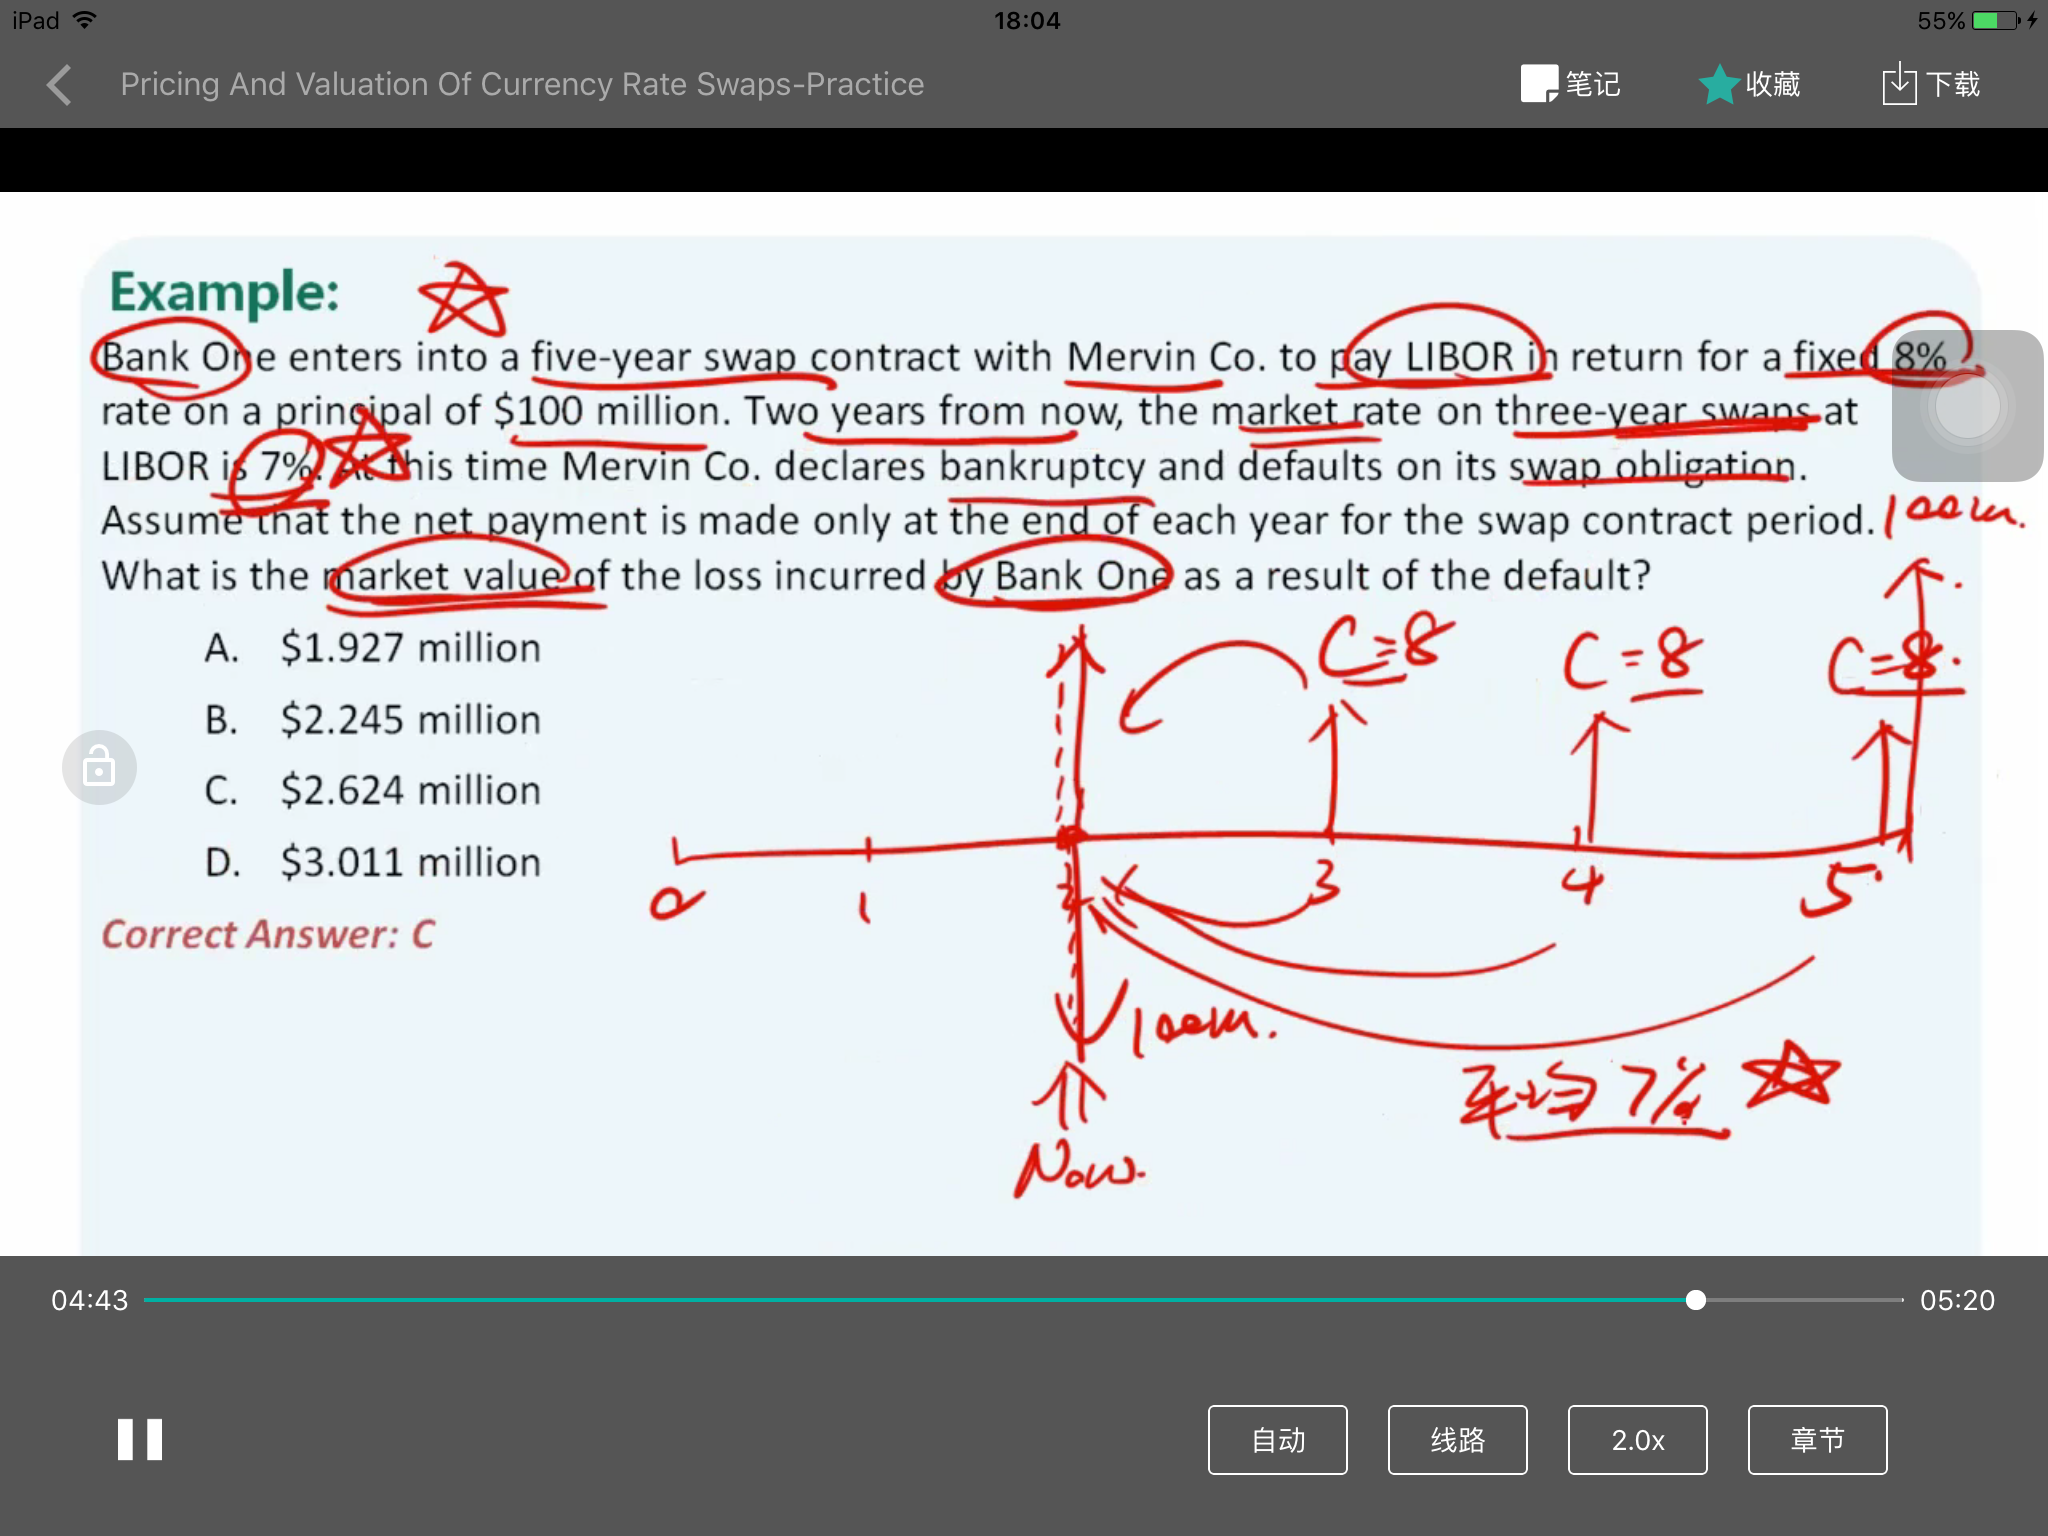 iPad 18:04 55%
Pricing And Valuation Of Currency Rate Swaps-Practice 笔记 收藏 下载
Example:
Bank One enters into a five-year swap contract with Mervin Co. to pay LIBOR in return for a fixed 8%
rate on a principal of $100 million. Two years from now, the market rate on three-year swaps at
LIBOR is 7%. At this time Mervin Co. declares bankruptcy and defaults on its swap obligation.
Assume that the net payment is made only at the end of each year for the swap contract period. 100m.
What is the market value of the loss incurred by Bank One as a result of the default?
C=8 C=8 C=8.
A. $1.927 million
B. $2.245 million
C. $2.624 million
D. $3.011 million
0 1 2 3 4 5
Correct Answer: C
100m.
平均 7%
Now.
04:43 05:20
自动 线路 2.0x 章节